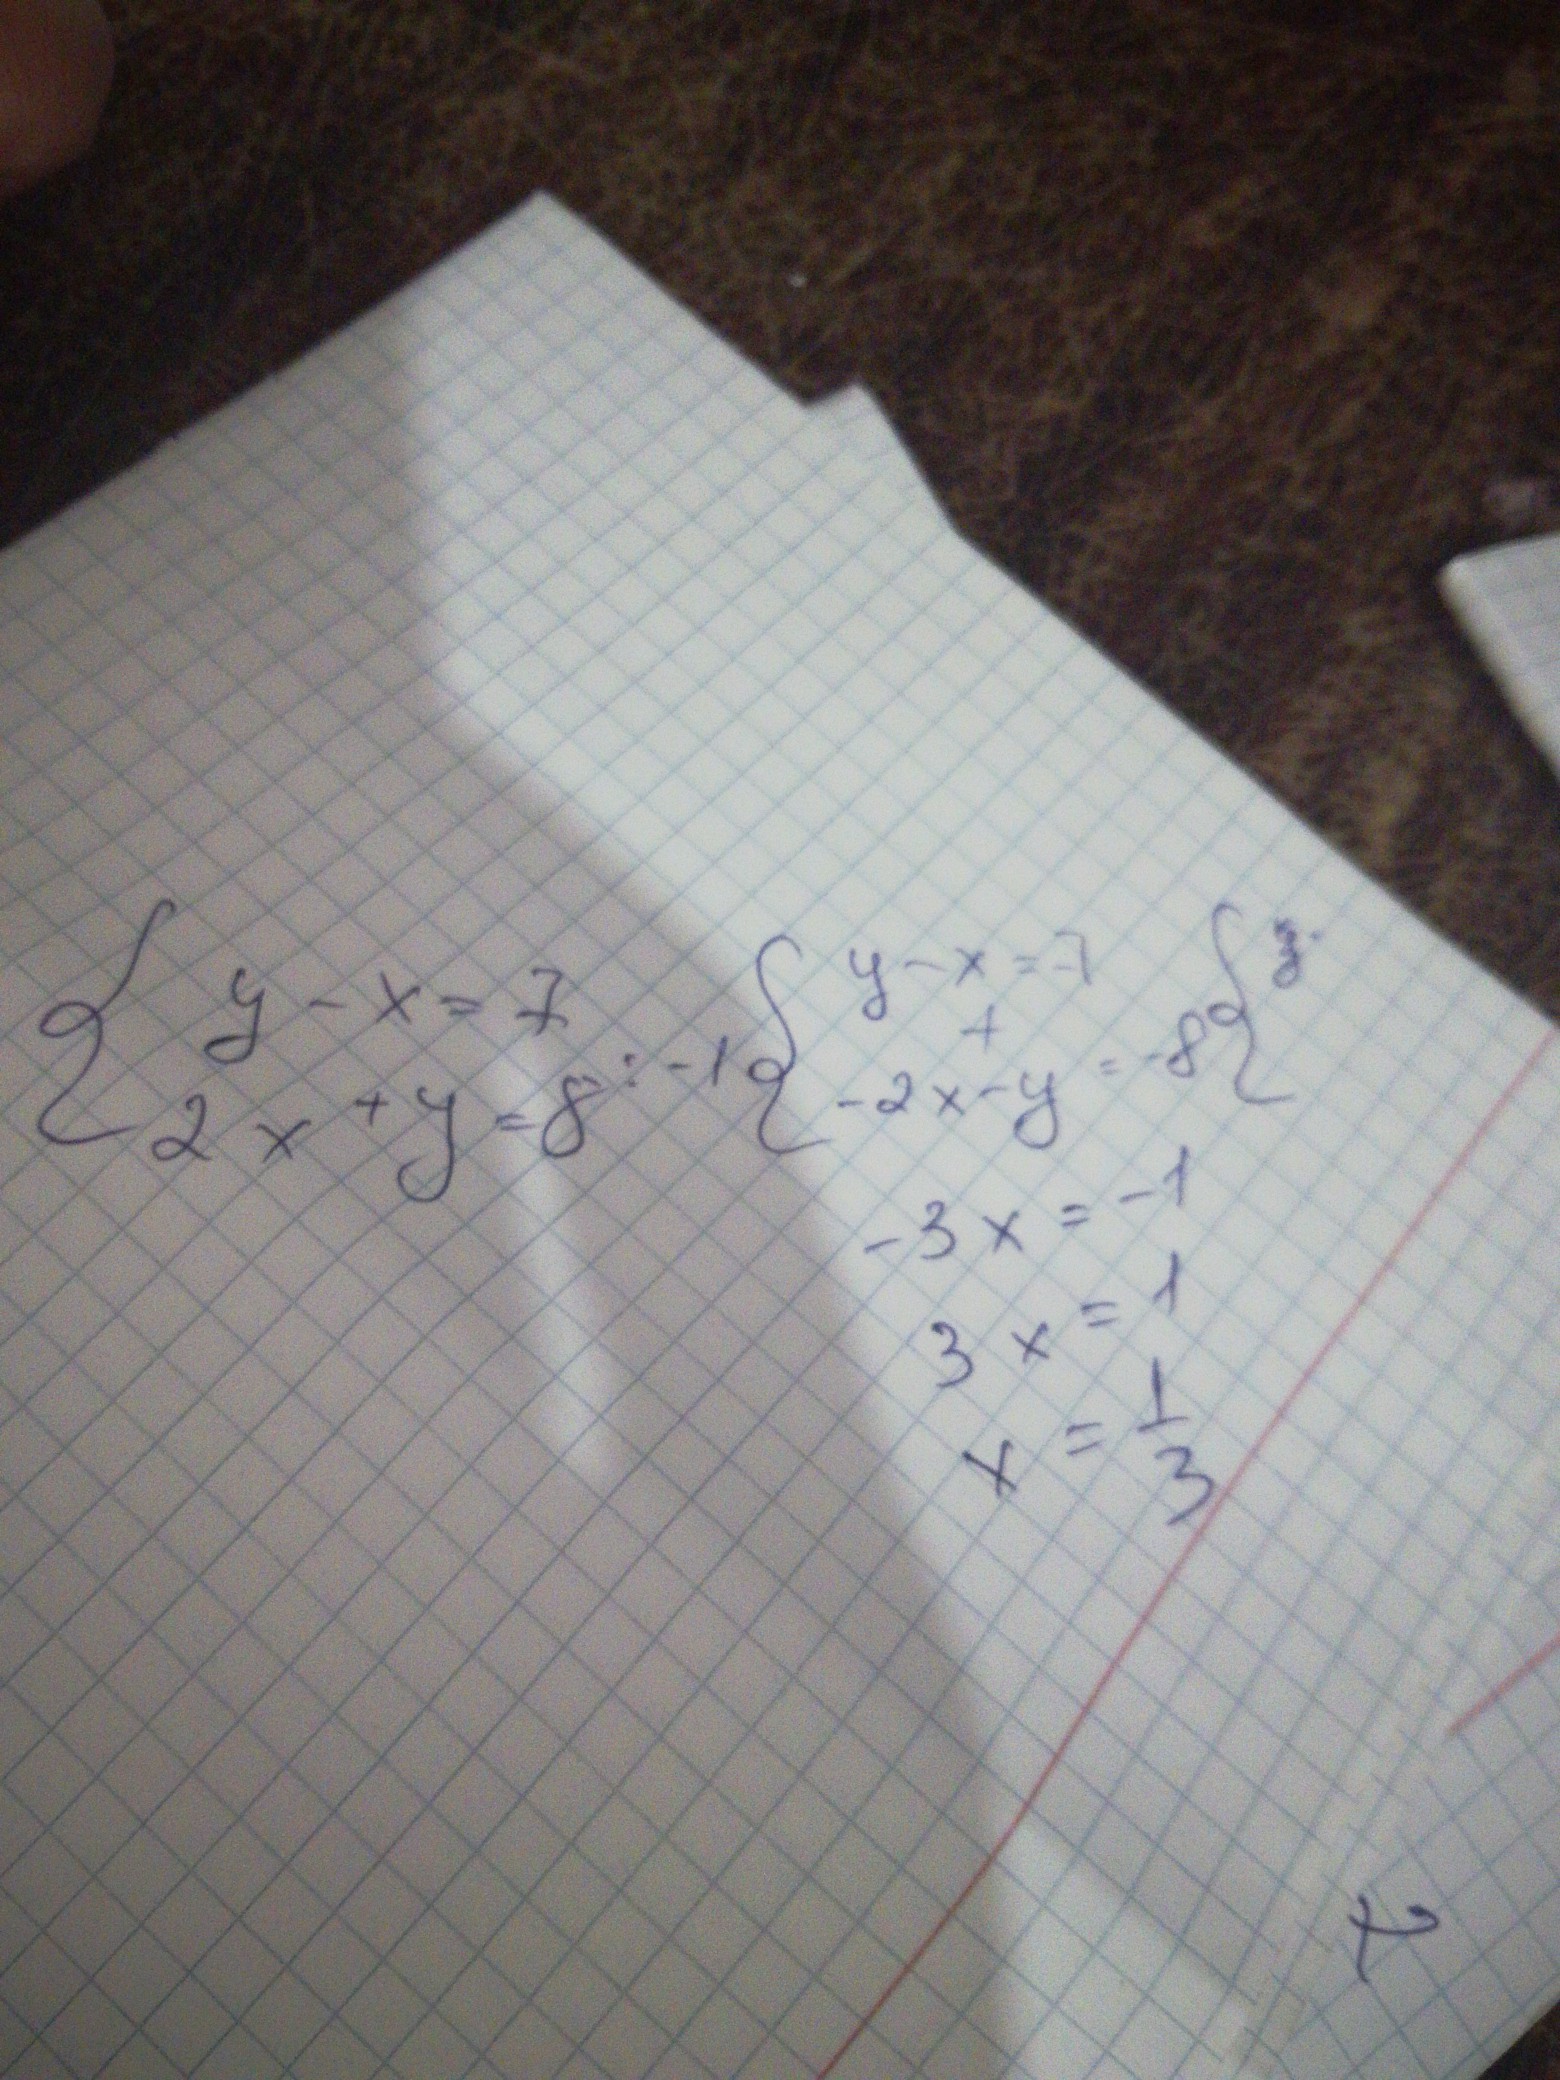 { y - x = 7
2x + y = 8 : -1
{ y - x = 7
+
-2x - y = -8
{
-3x = -1
3x = 1
x = 1/3